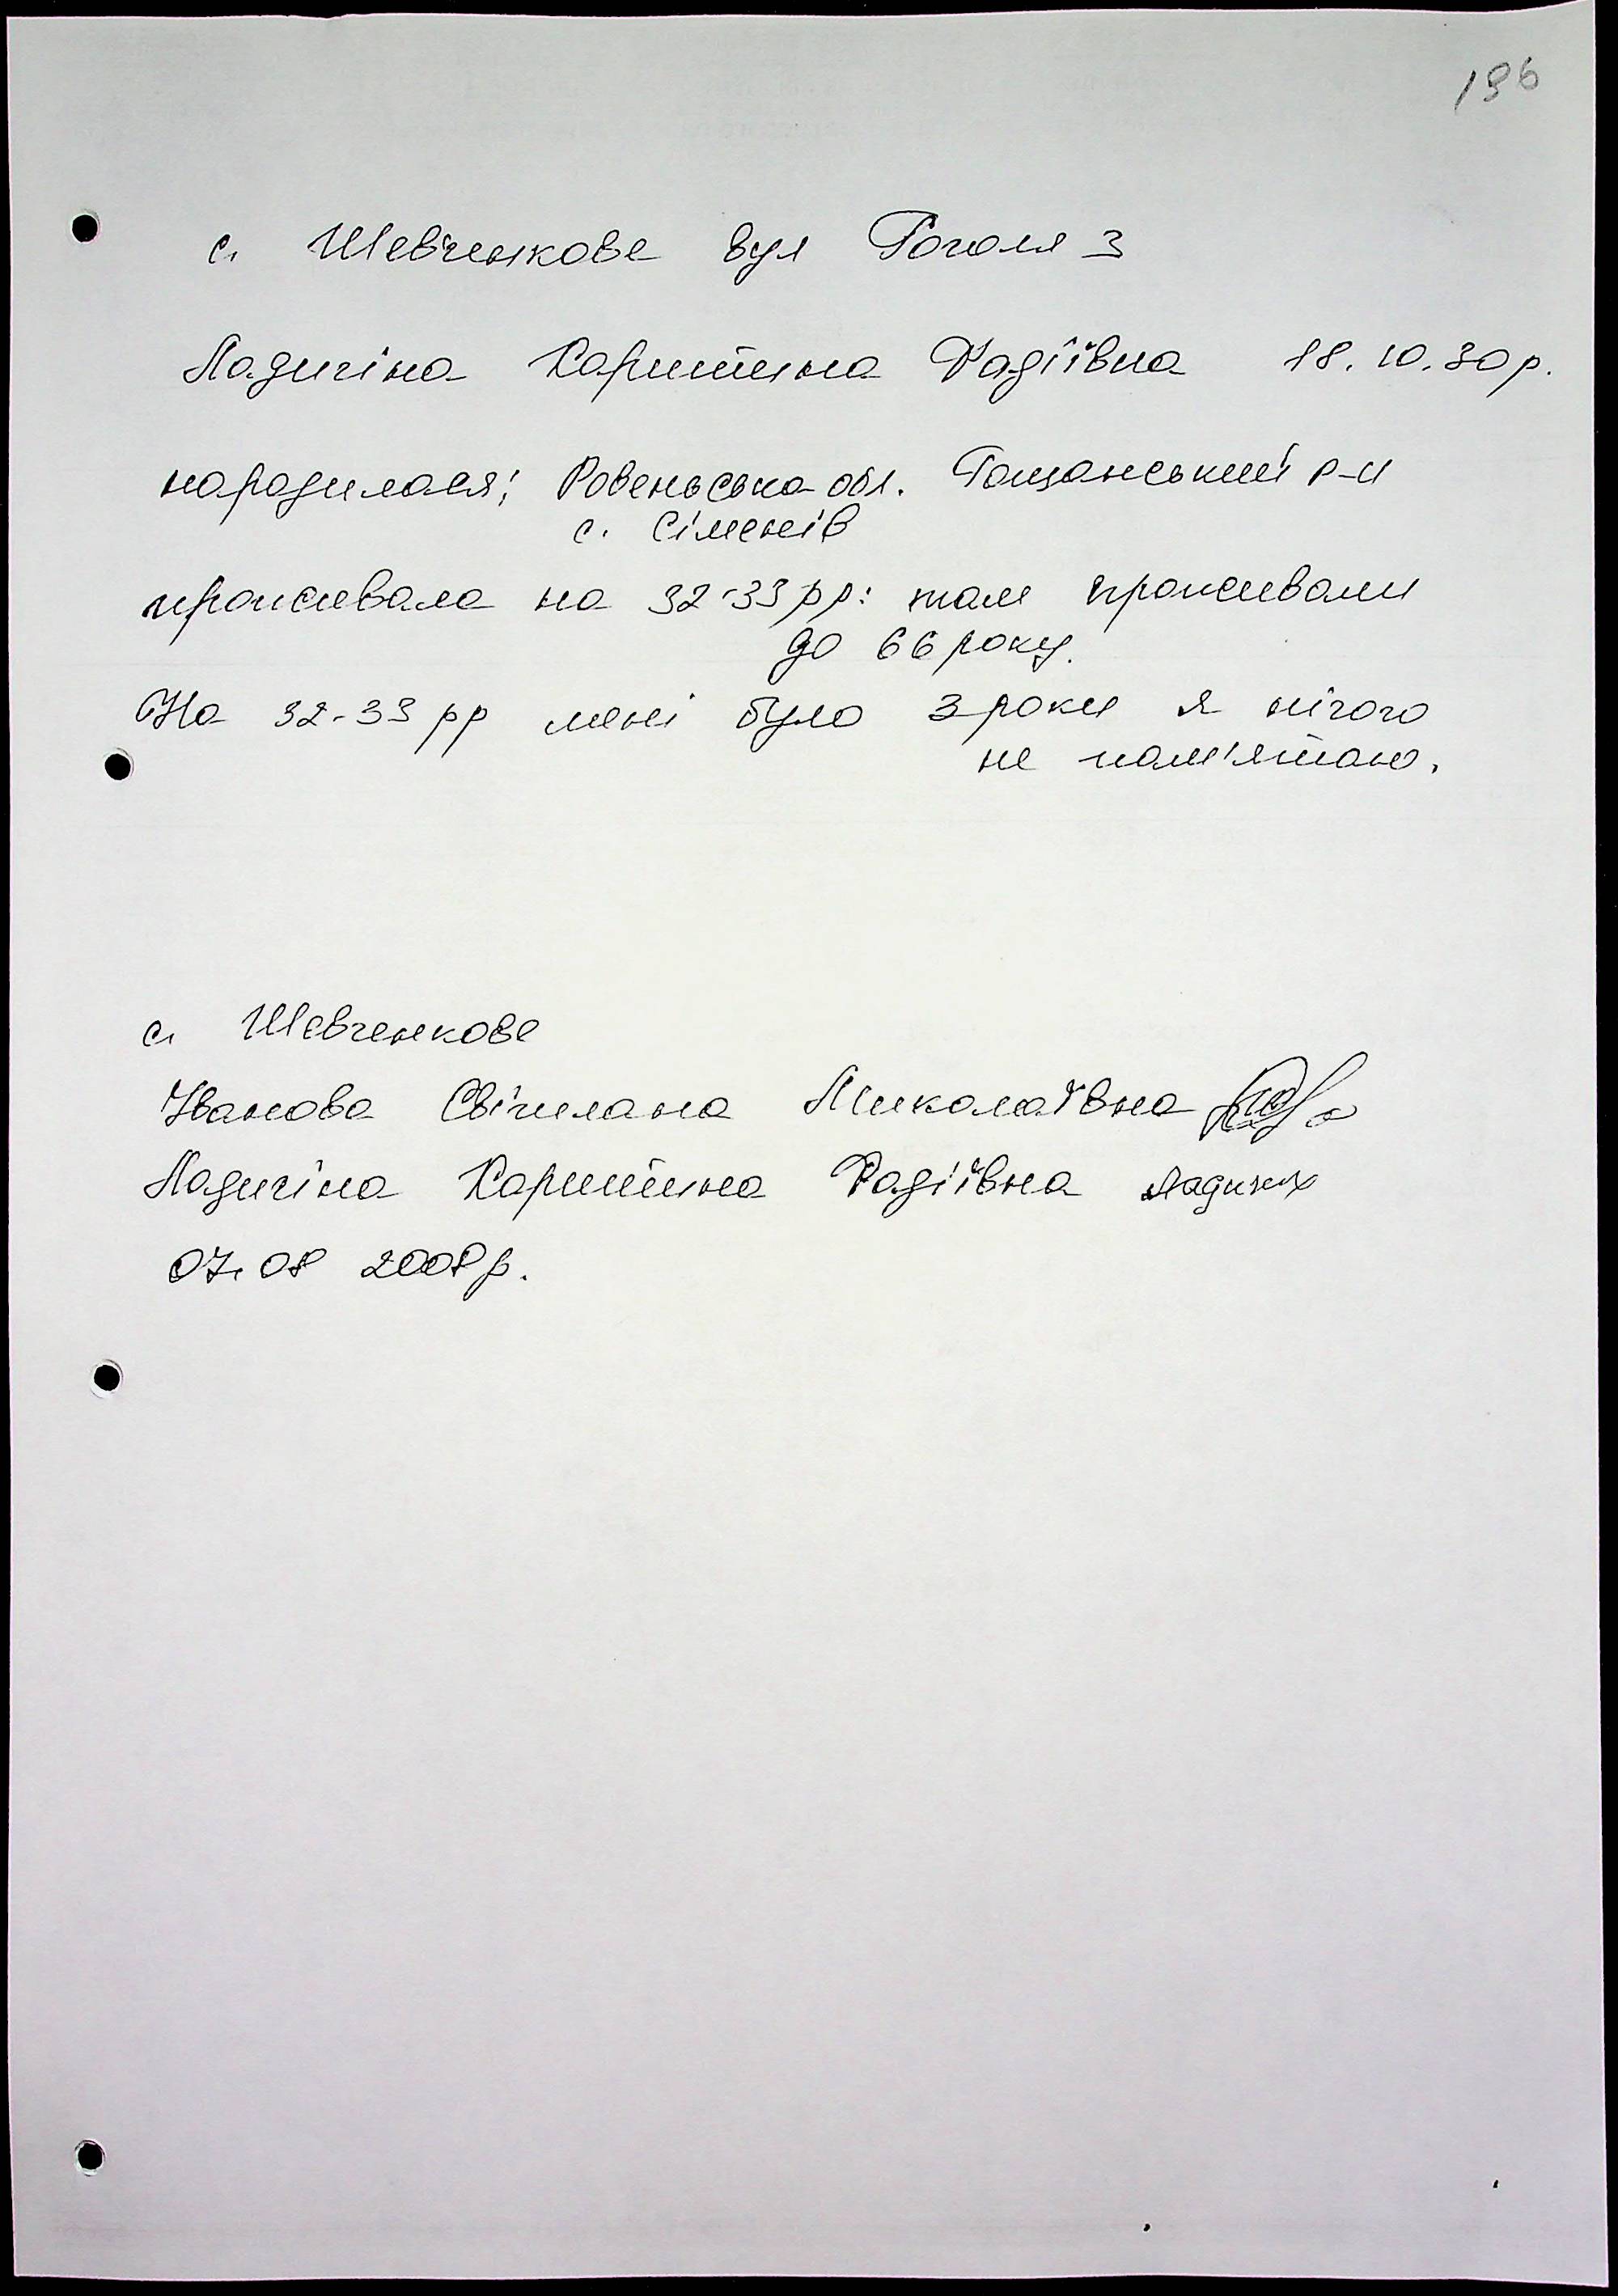 196
с. Шевченкове вул Гоголя 3
Ладигіна Харитина Радіївна 18.10.30р.
народилася; Ровеньська обл. Гощанський р-н
с. Сіменів
проживала на 32-33 рр: там проживали
до 66 року.
На 32-33 рр мені було 3 роки я нічого
не пам'ятаю.
с. Шевченкове
Іванова Світлана Миколаївна
Ладигіна Харитина Радіївна
07.08 2008р.